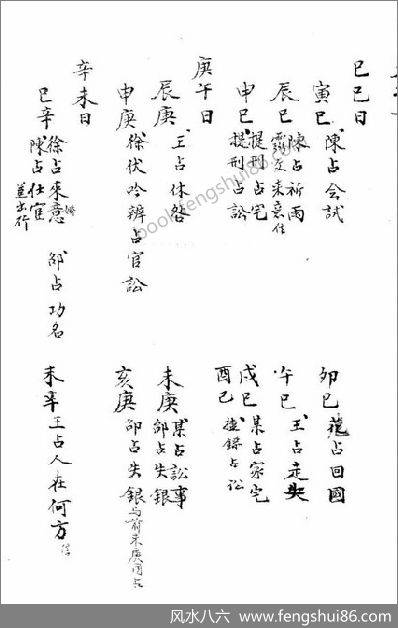 己巳日
寅己 陳占会試
卯己 范占回國
辰己 陳占祈雨
来意信
午己 王占走失
申己 提刑占宅
提刑占訟
戌己 某占家宅
酉己 占訟
庚午日
辰庚 王占休咎
未庚 某占訟事
邵占失銀
申庚 徐伏吟辨占官訟
亥庚 邵占失銀与前未庚同占
辛未日
巳辛 徐占来意
陳占仕宦並出行
邵占功名
未辛 王占人在何方 信
book.fengshui86.com
风水八六 - www.fengshui86.com